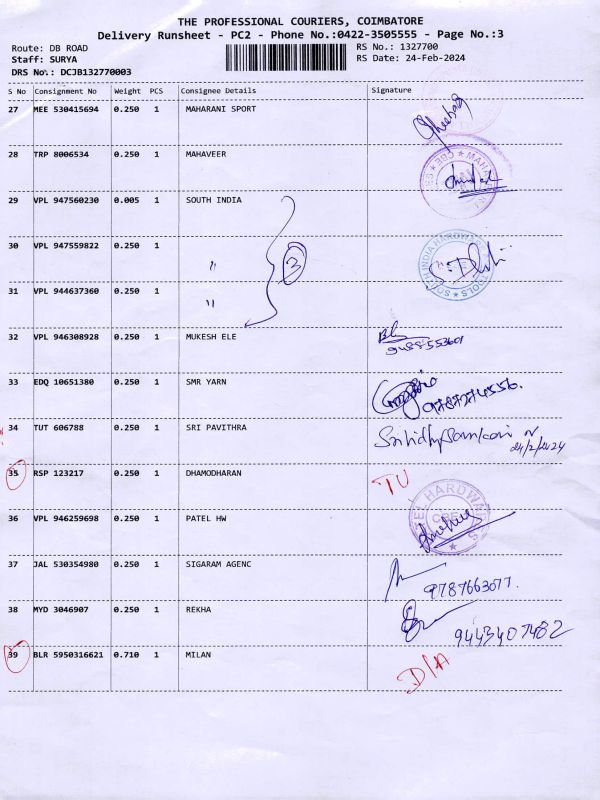 THE PROFESSIONAL COURIERS, COIMBATORE
Delivery Runsheet - PC2 - Phone No.:0422-3505555 - Page No.:3
Route: DB ROAD
RS No.: 1327700
Staff: SURYA
RS Date: 24-Feb-2024
DRS No.: DCJB132770003
S No Consignment No Weight PCS Consignee Details Signature
27 MEE 530415694 0.250 1 MAHARANI SPORT
28 TRP 8006534 0.250 1 MAHAVEER
29 VPL 947560230 0.005 1 SOUTH INDIA
30 VPL 947559822 0.250 1 〃 3
SOUTH INDIA HARDWARE TOOLS
31 VPL 944637360 0.250 1 〃
32 VPL 946308928 0.250 1 MUKESH ELE
33 EDQ 10651380 0.250 1 SMR YARN
9787274556.
34 TUT 606788 0.250 1 SRI PAVITHRA
24/2/2024
35 RSP 123217 0.250 1 DHAMODHARAN TU
36 VPL 946259698 0.250 1 PATEL HW
37 JAL 530354980 0.250 1 SIGARAM AGENC
9787663077.
38 MYD 3046907 0.250 1 REKHA
9443407482
39 BLR 5950316621 0.710 1 MILAN D/A